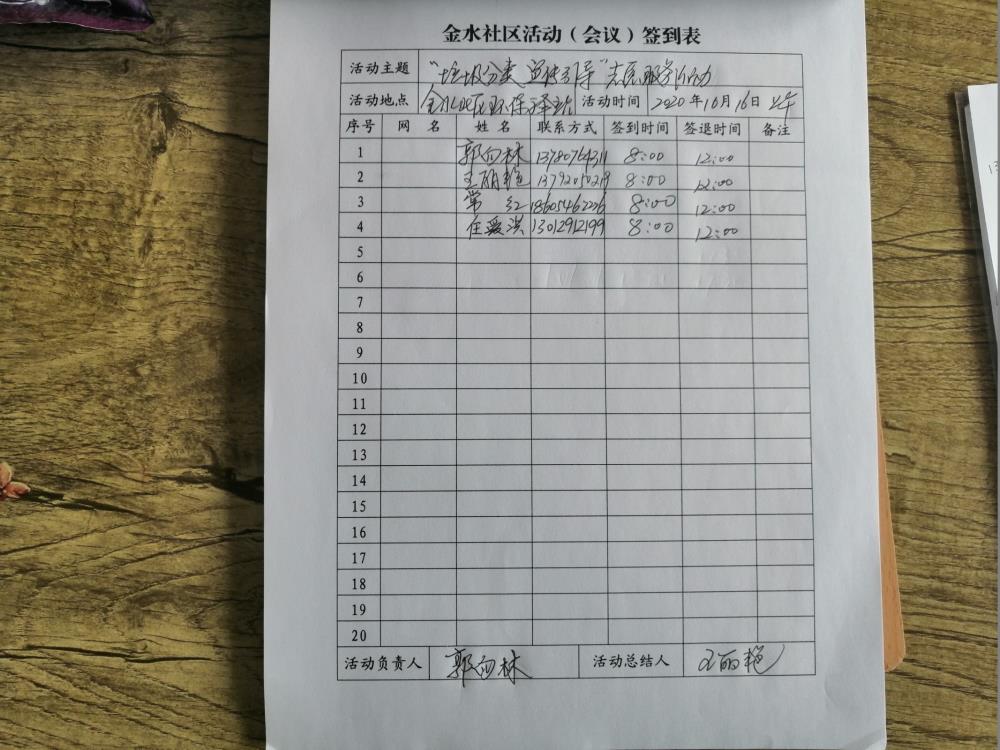 金水社区活动（会议）签到表
活动主题 “垃圾分类 宣传引导”志愿服务活动
活动地点 金水社区环保驿站 活动时间 2020年10月16日 上午
序号 网名 姓名 联系方式 签到时间 签退时间 备注
1 郭向林 13780764311 8:00 12:00
2 王丽艳 13792050219 8:00 12:00
3 常红 18605462226 8:00 12:00
4 任爱洪 13012912199 8:00 12:00
5
6
7
8
9
10
11
12
13
14
15
16
17
18
19
20
活动负责人 郭向林 活动总结人 王丽艳